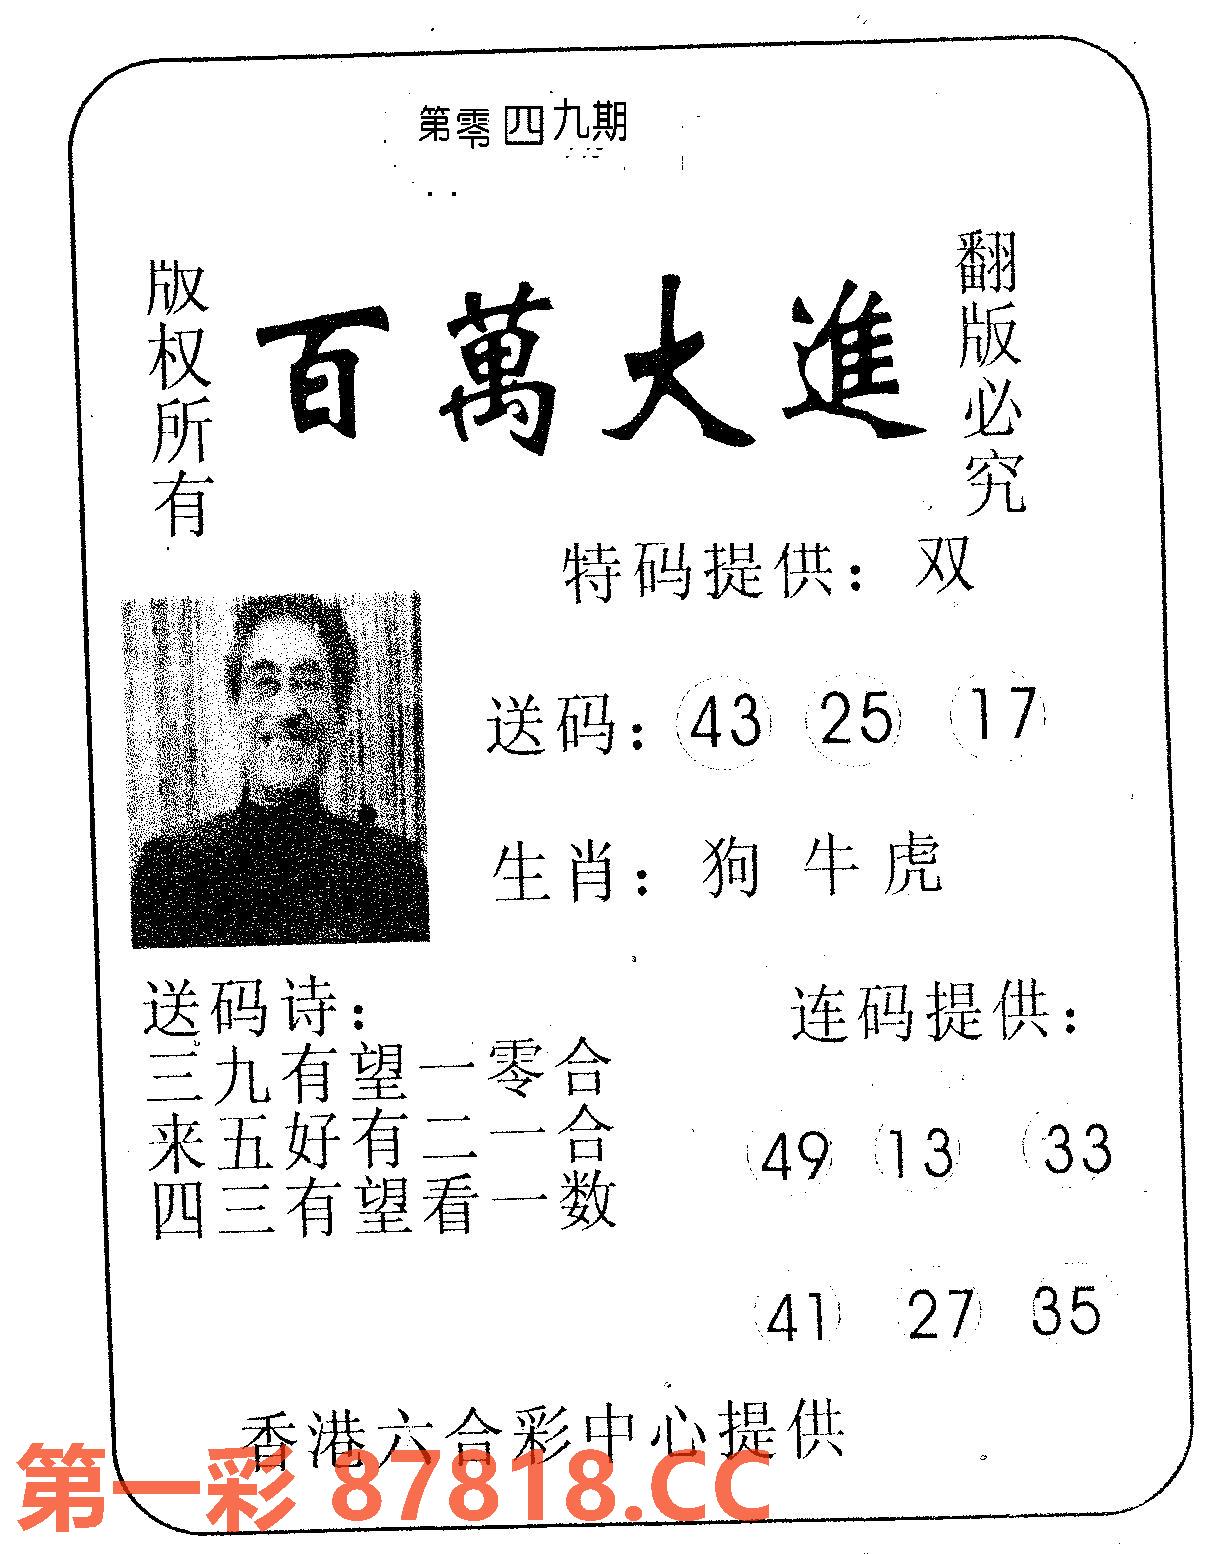 第零四九期
版权所有
百萬大進
翻版必究
特码提供：双
送码：43 25 17
生肖：狗 牛 虎
送码诗：
三九有望一零合
来五好有二一合
四三有望看一数
连码提供：
49 13 33
41 27 35
香港六合彩中心提供
第一彩 87818.CC